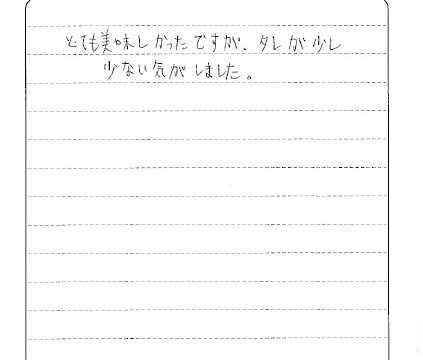 とても美味しかったですが、タレが少し
少ない気がしました。